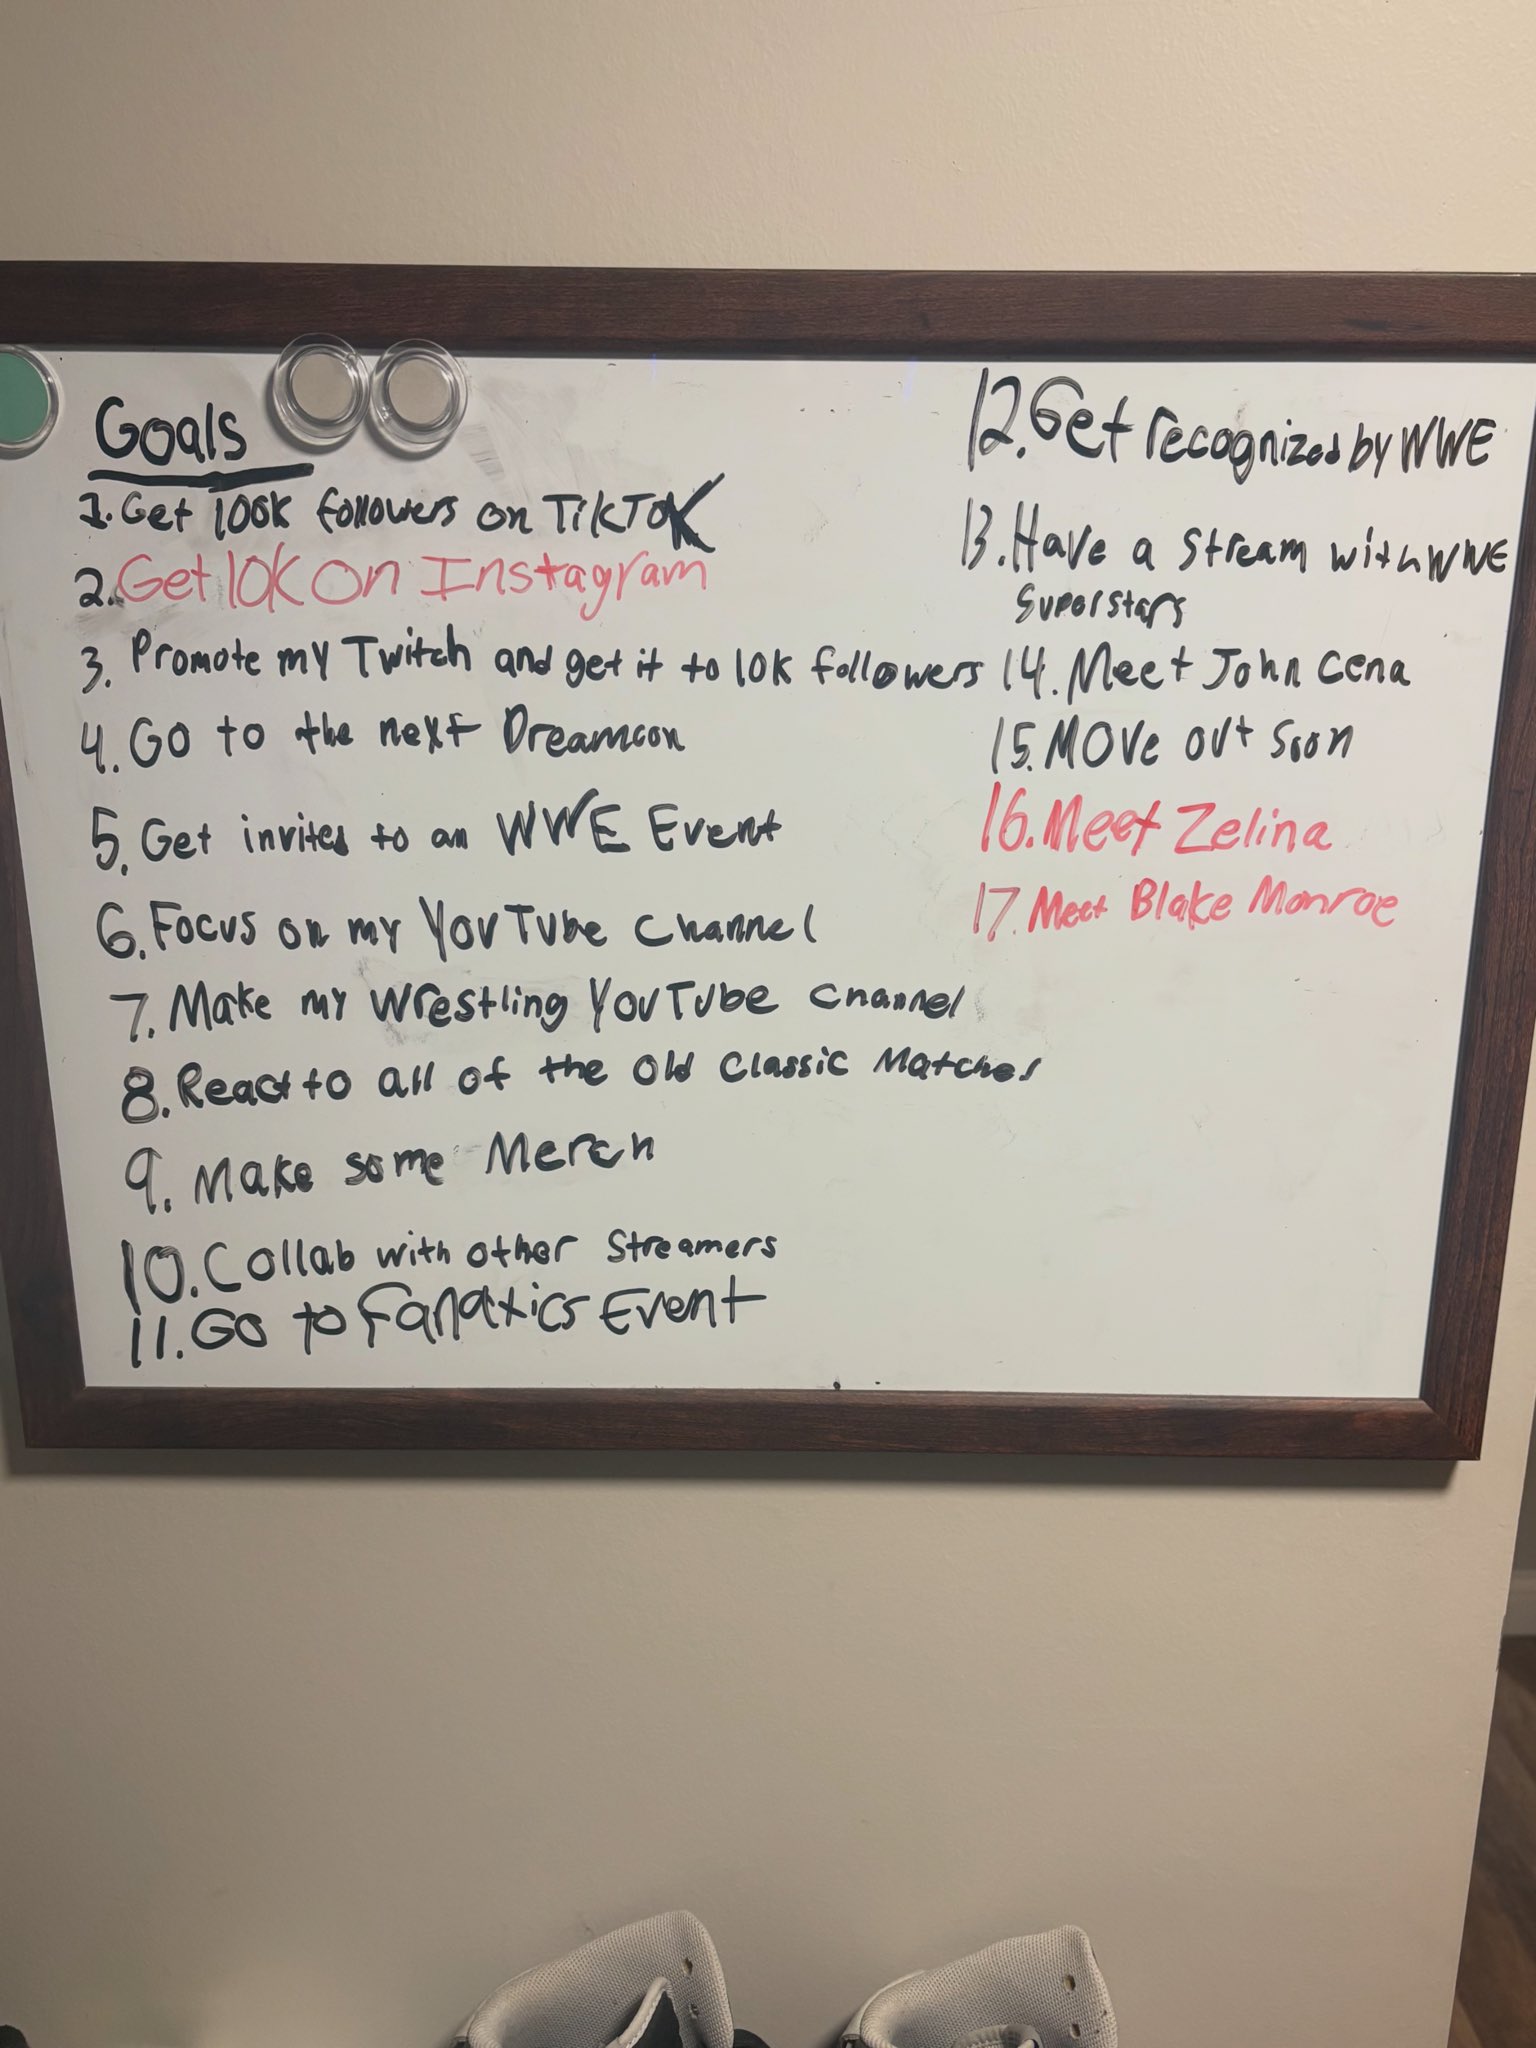 Goals
1. Get 100K followers on TikTok
2. Get 10K on Instagram
3. Promote my Twitch and get it to 10K followers
4. Go to the next Dreamcon
5. Get invited to an WWE Event
6. Focus on my YouTube Channel
7. Make my Wrestling YouTube Channel
8. React to all of the old Classic Matches
9. Make some Merch
10. Collab with other Streamers
11. Go to Fanatics Event
12. Get recognized by WWE
13. Have a Stream with WWE
Superstars
14. Meet John Cena
15. Move out soon
16. Meet Zelina
17. Meet Blake Monroe